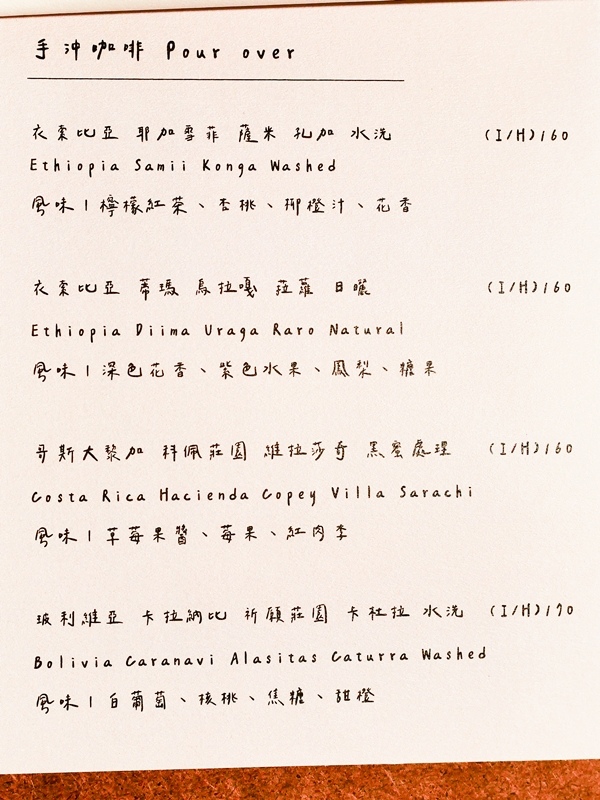 手沖咖啡 Pour over
衣索比亞 耶加雪菲 薩米 孔加 水洗 (I/H)160
Ethiopia Samii Konga Washed
風味|檸檬紅茶、杏桃、柳橙汁、花香
衣索比亞 蒂瑪 烏拉嘎 菈蘿 日曬 (I/H)160
Ethiopia Diima Uraga Raro Natural
風味|深色花香、紫色水果、鳳梨、糖果
哥斯大黎加 科佩莊園 維拉莎奇 黑蜜處理 (I/H)160
Costa Rica Hacienda Copey Villa Sarachi
風味|草莓果醬、莓果、紅肉李
玻利維亞 卡拉納比 祈願莊園 卡杜拉 水洗 (I/H)170
Bolivia Caranavi Alasitas Caturra Washed
風味|白葡萄、核桃、焦糖、甜橙